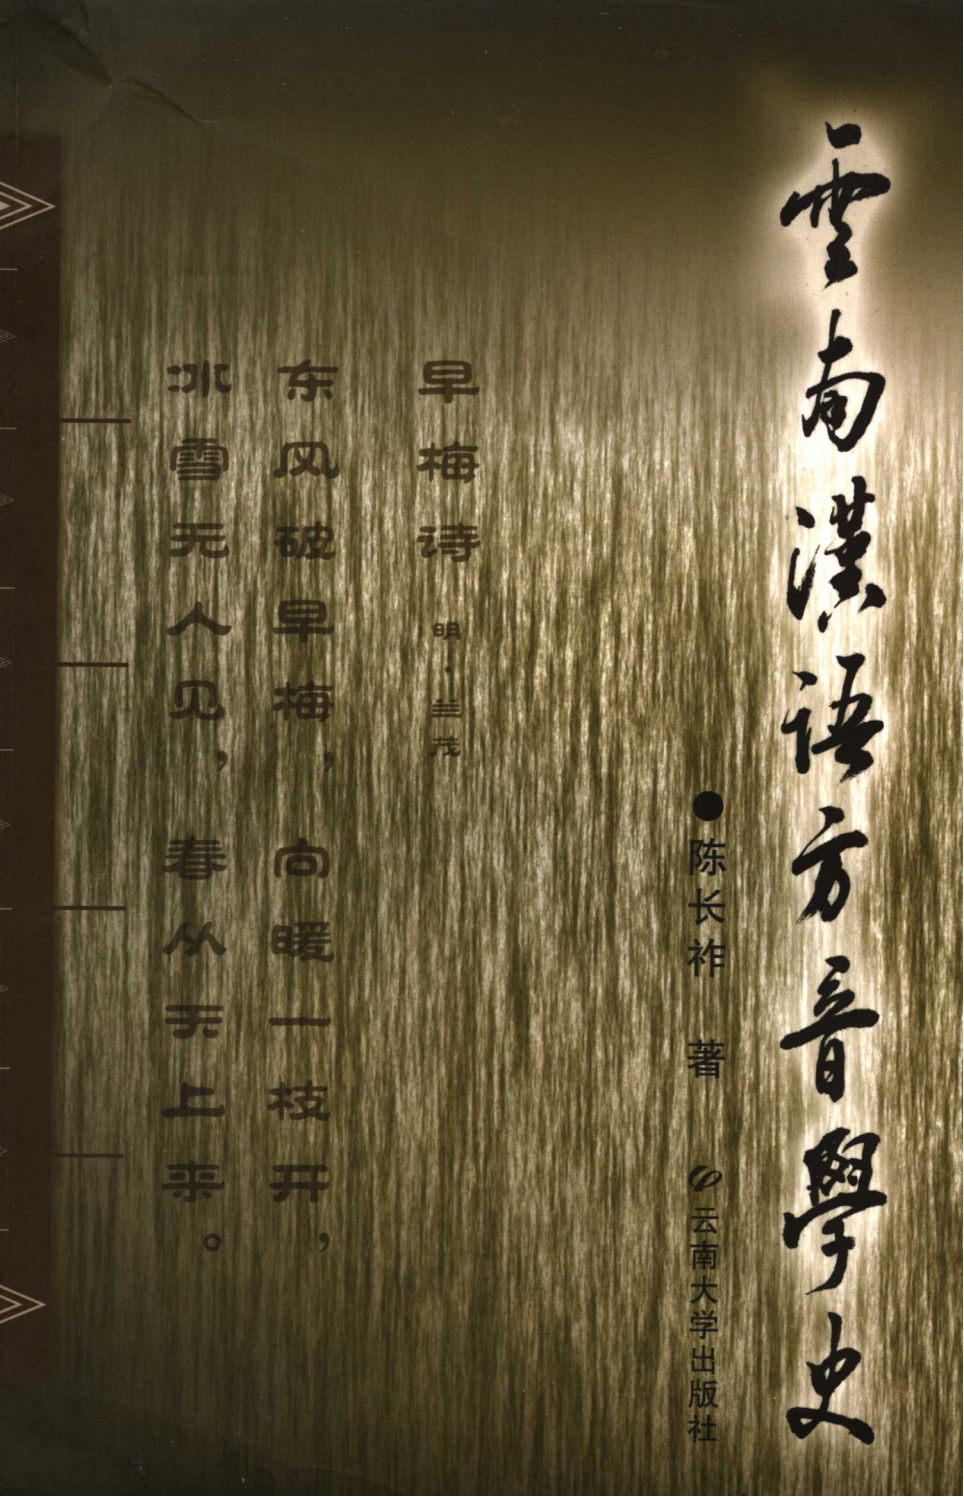 雲南漢語方音學史
●陈长祚 著
云南大学出版社
早梅诗 明·兰茂
东风破早梅，向暖一枝开，
冰雪无人见，春从天上来。